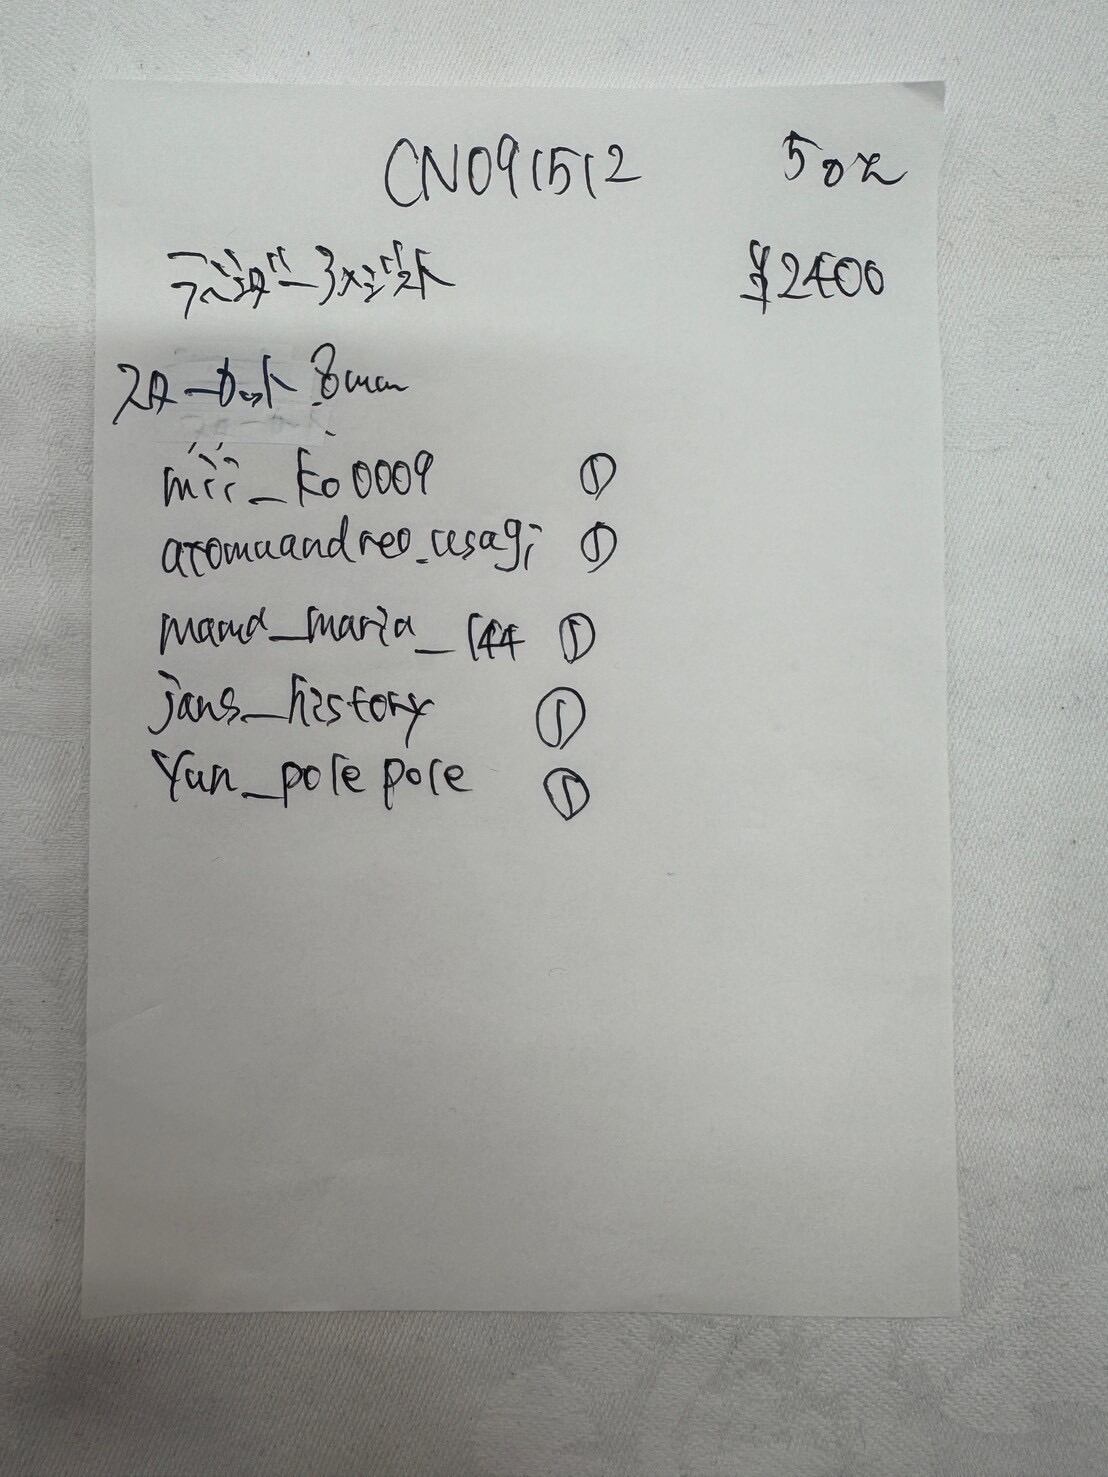 CN091512 50%
¥2400
スターカット 8mm
mii_ko0009 ①
aromaandneo_usagi ①
mama_maria_144 ①
jans_history ①
Yun_polepole ①